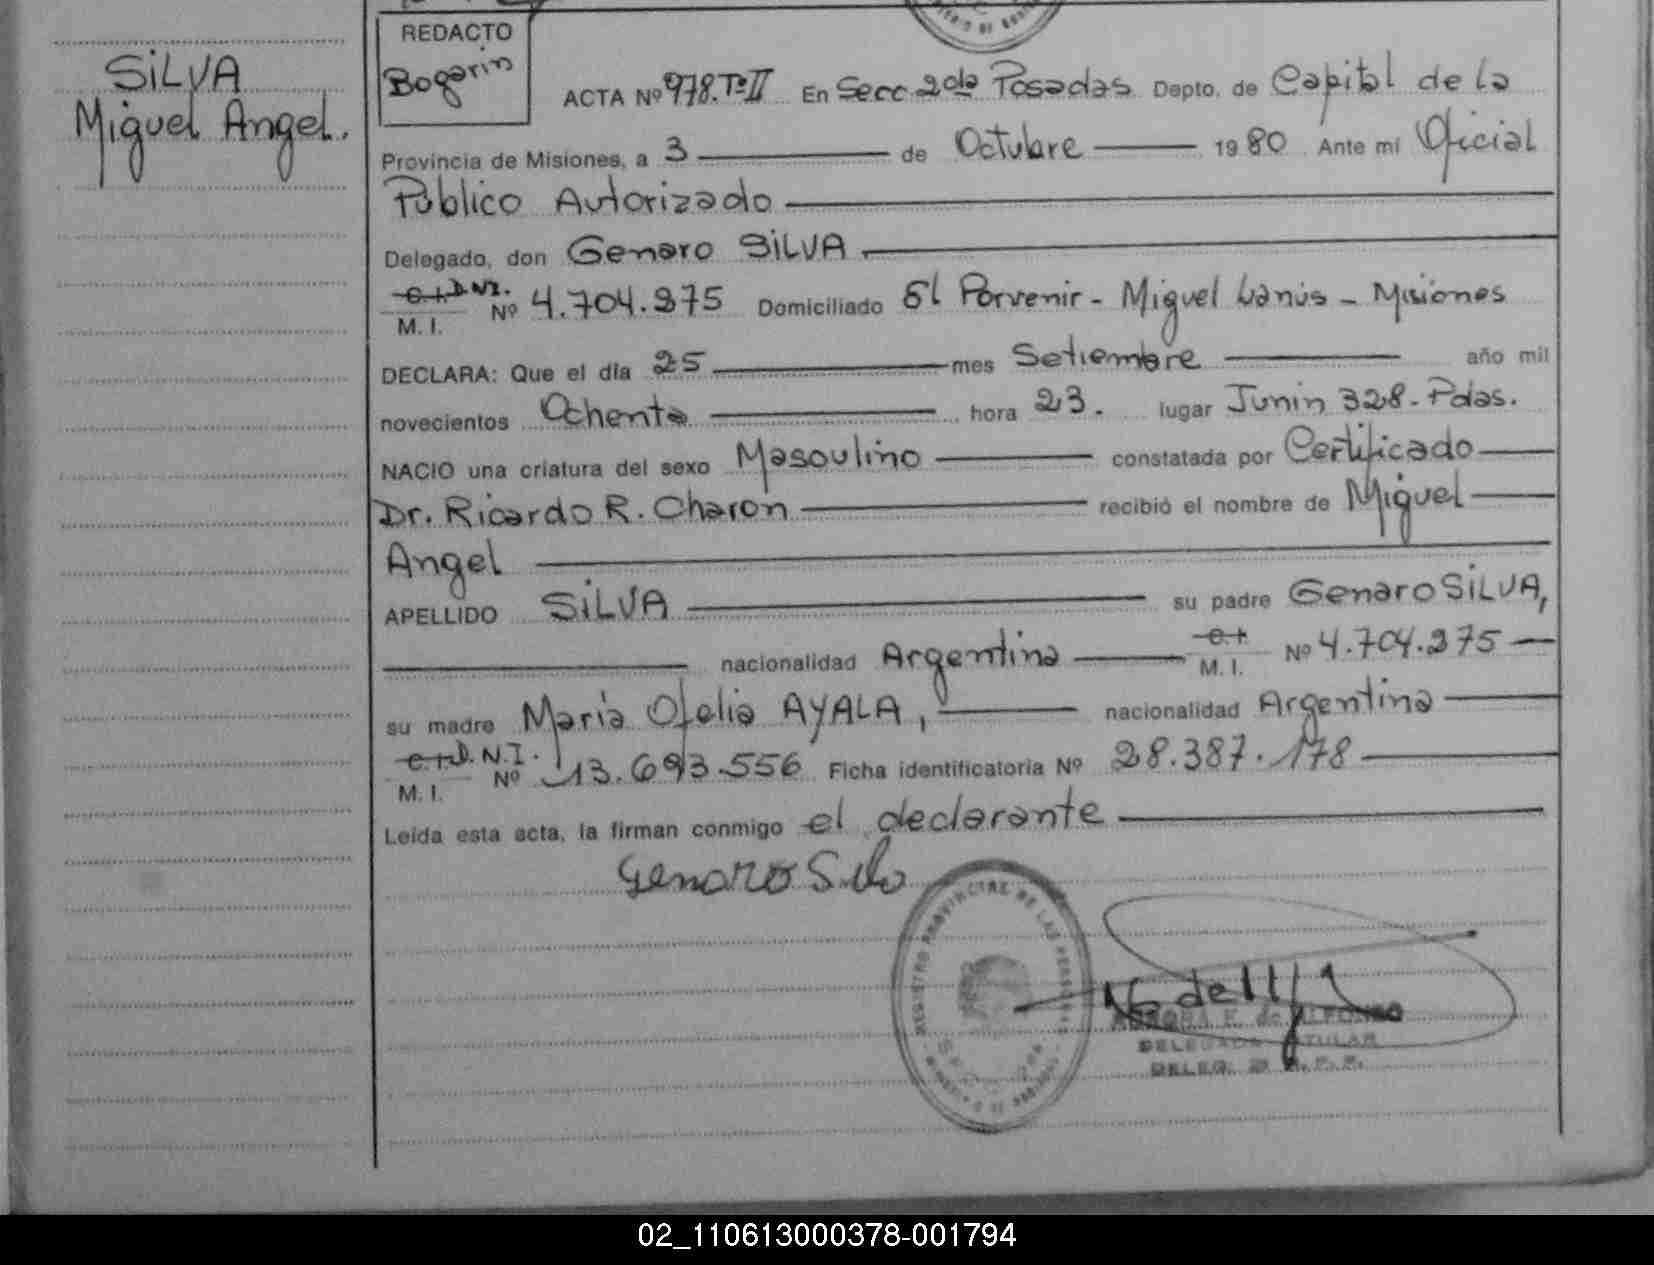 SILVA
Miguel Angel.
REDACTO
Bogarin
ACTA Nº 978.Tº II En Secc 2da Posadas Depto. de Capital de la
Provincia de Misiones, a 3 de Octubre 1980 Ante mi Oficial
Público Autorizado
Delegado, don Genaro SILVA
C.I. D.NI. M. I. Nº 4.704.375 Domiciliado El Porvenir - Miguel Lanús - Misiones
DECLARA: Que el día 25 mes Setiembre año mil
novecientos Ochenta hora 23. lugar Junin 328-Pdas.
NACIO una criatura del sexo Masculino constatada por Certificado
Dr. Ricardo R. Charon recibió el nombre de Miguel
Angel
APELLIDO SILVA su padre Genaro SILVA,
nacionalidad Argentina C.I. M. I. Nº 4.704.375
su madre María Ofelia AYALA, nacionalidad Argentina
C.I. D.N.I. M. I. Nº 13.693.556 Ficha identificatoria Nº 28.387.178
Leída esta acta, la firman conmigo el declarante
Genaro Silva
REGISTRO PROVINCIAL DE LAS PERSONAS
DELEGADA TITULAR
02_110613000378-001794